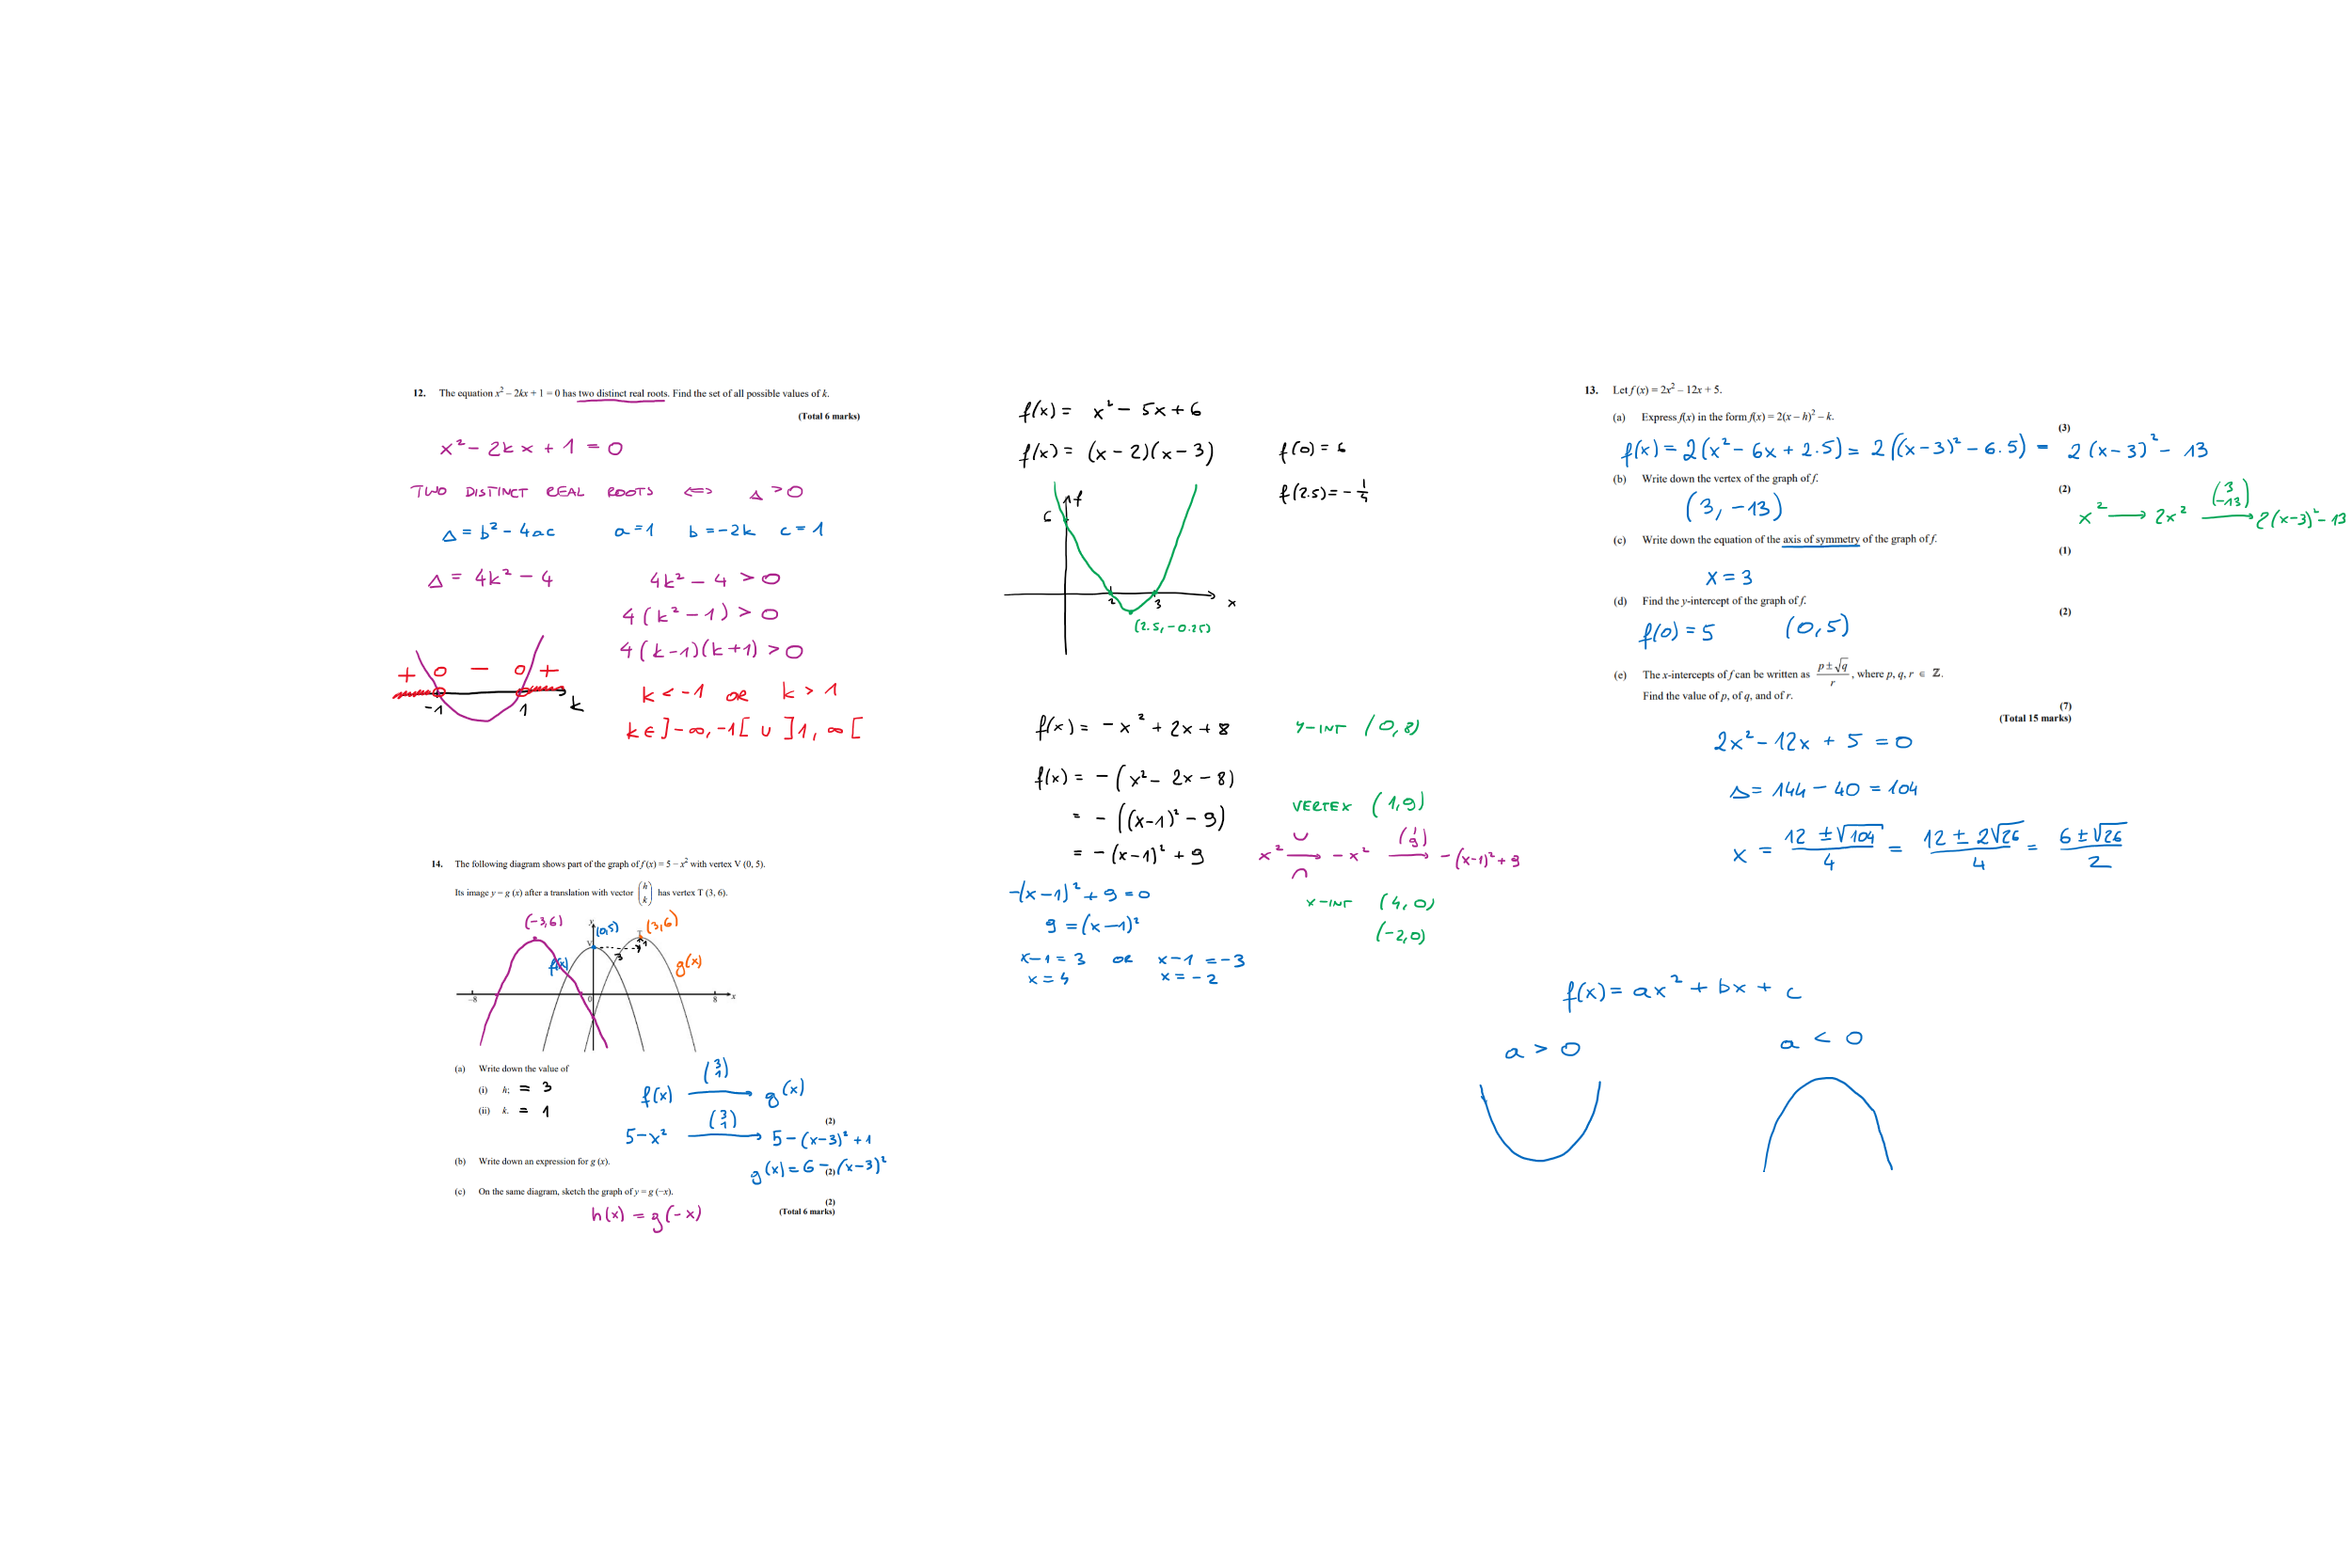 12. The equation x² – 2kx + 1 = 0 has two distinct real roots. Find the set of all possible values of k.
(Total 6 marks)
x² − 2kx + 1 = 0
TWO DISTINCT REAL ROOTS ⇔ Δ > 0
Δ = b² − 4ac a = 1 b = −2k c = 1
Δ = 4k² − 4 4k² − 4 > 0
4(k² − 1) > 0
4(k−1)(k+1) > 0
+ 0 − 0 +
−1 1 k
k < −1 OR k > 1
k ∈ ]−∞, −1[ ∪ ]1, ∞[
14. The following diagram shows part of the graph of f (x) = 5 – x² with vertex V (0, 5).
Its image y = g (x) after a translation with vector (h k) has vertex T (3, 6).
(−3,6) y (0,5) T (3,6)
V 1
f(x) 3 g(x)
–8 0 8 x
(a) Write down the value of
(i) h; = 3
(ii) k. = 1
f(x) ⟶ (3 1) g(x)
(2)
5−x² ⟶ (3 1) 5 − (x−3)² + 1
(b) Write down an expression for g (x).
g(x) = 6 − (x−3)²
(2)
(c) On the same diagram, sketch the graph of y = g (–x).
(2)
(Total 6 marks)
h(x) = g(−x)
f(x) = x² − 5x + 6
f(x) = (x − 2)(x − 3) f(0) = 6
f(2.5) = −1/4
f
6
2 3 x
(2.5, −0.25)
f(x) = −x² + 2x + 8 Y-INT (0,8)
f(x) = −(x² − 2x − 8)
= −((x−1)² − 9) VERTEX (1,9)
= −(x−1)² + 9 x² ⟶ −x² ⟶ (1 9) −(x−1)² + 9
∪
∩
−(x−1)² + 9 = 0 X-INT (4,0)
9 = (x−1)² (−2,0)
x−1 = 3 OR x−1 = −3
x = 4 x = −2
13. Let f (x) = 2x² – 12x + 5.
(a) Express f(x) in the form f(x) = 2(x – h)² – k.
(3)
f(x) = 2(x² − 6x + 2.5) = 2((x−3)² − 6.5) = 2(x−3)² − 13
(b) Write down the vertex of the graph of f.
(2)
(3, −13) x² ⟶ 2x² ⟶ (3 −13) 2(x−3)² − 13
(c) Write down the equation of the axis of symmetry of the graph of f.
(1)
x = 3
(d) Find the y-intercept of the graph of f.
(2)
f(0) = 5 (0,5)
(e) The x-intercepts of f can be written as (p ± √q)/r, where p, q, r ∈ Z.
Find the value of p, of q, and of r.
(7)
(Total 15 marks)
2x² − 12x + 5 = 0
Δ = 144 − 40 = 104
x = (12 ± √104)/4 = (12 ± 2√26)/4 = (6 ± √26)/2
f(x) = ax² + bx + c
a > 0 a < 0